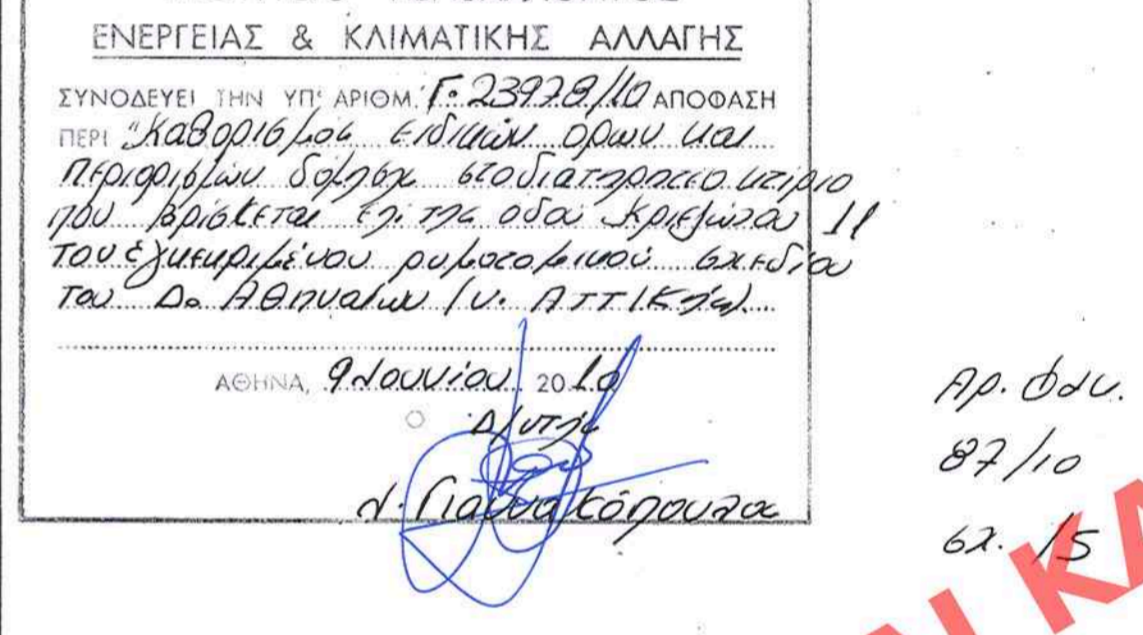 ΕΝΕΡΓΕΙΑΣ & ΚΛΙΜΑΤΙΚΗΣ ΑΛΛΑΓΗΣ
ΣΥΝΟΔΕΥΕΙ ΤΗΝ ΥΠ' ΑΡΙΘΜ. Γ. 23978/10 ΑΠΟΦΑΣΗ
ΠΕΡΙ "Καθορισμός ειδικών όρων και
περιορισμών δόμησης στο διατηρητέο κτίριο
που βρίσκεται επί της οδού Κριεζώτου 11
του εγκεκριμένου ρυμοτομικού σχεδίου
του Δ. Αθηναίων (ν. Αττικής).
ΑΘΗΝΑ, 9 Ιουνίου 2010
Δ/ντής
Ν. Γιαννακόπουλος
Αρ. Φακ.
87/10
σχ. 15
ΚΑ